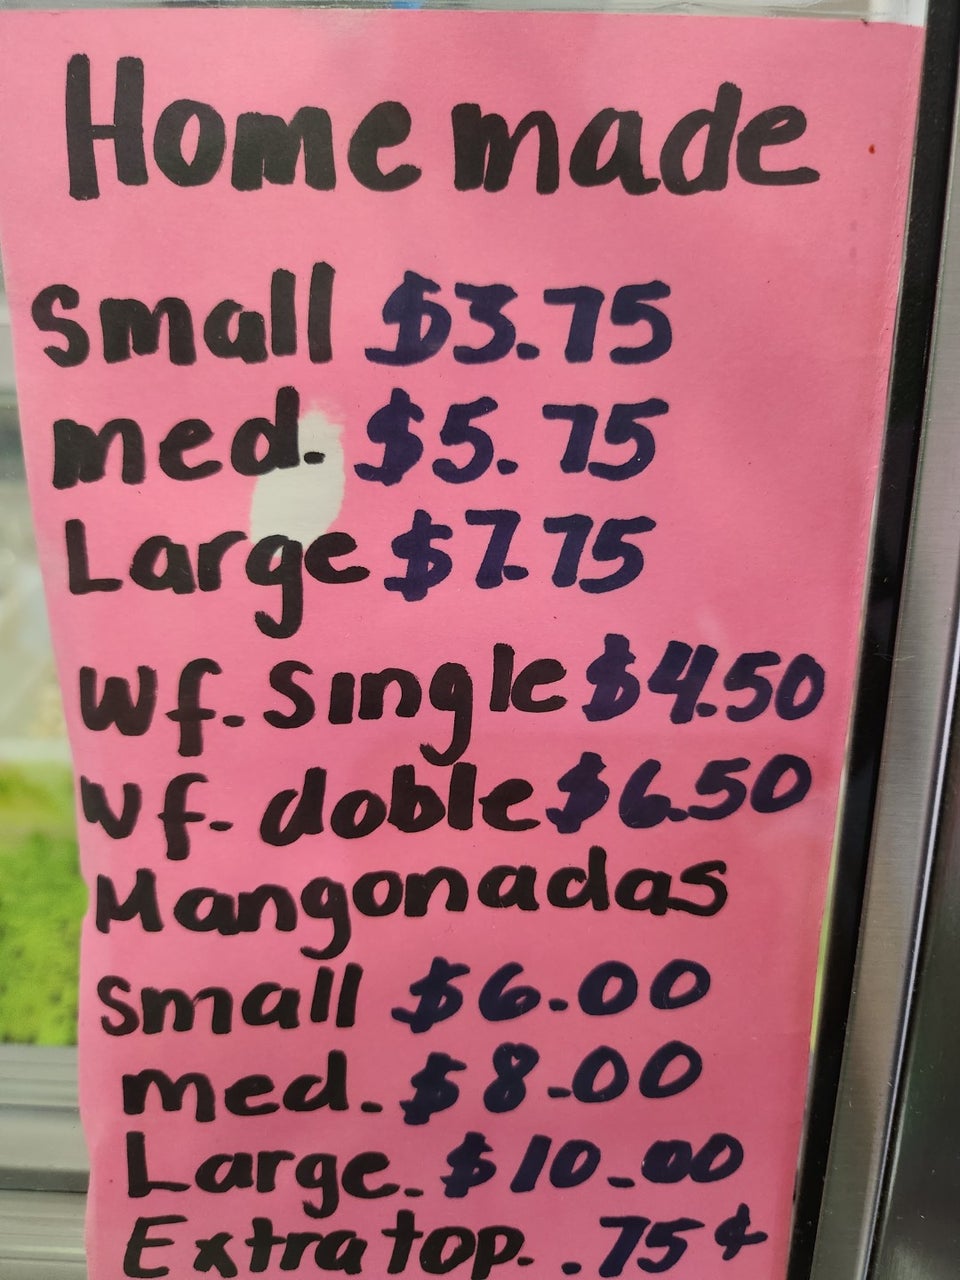 Homemade
Small $3.75
med. $5.75
Large $7.75
Wf. Single $4.50
Wf. doble $6.50
Mangonadas
Small $6.00
med. $8.00
Large. $10.00
Extra top. .75¢